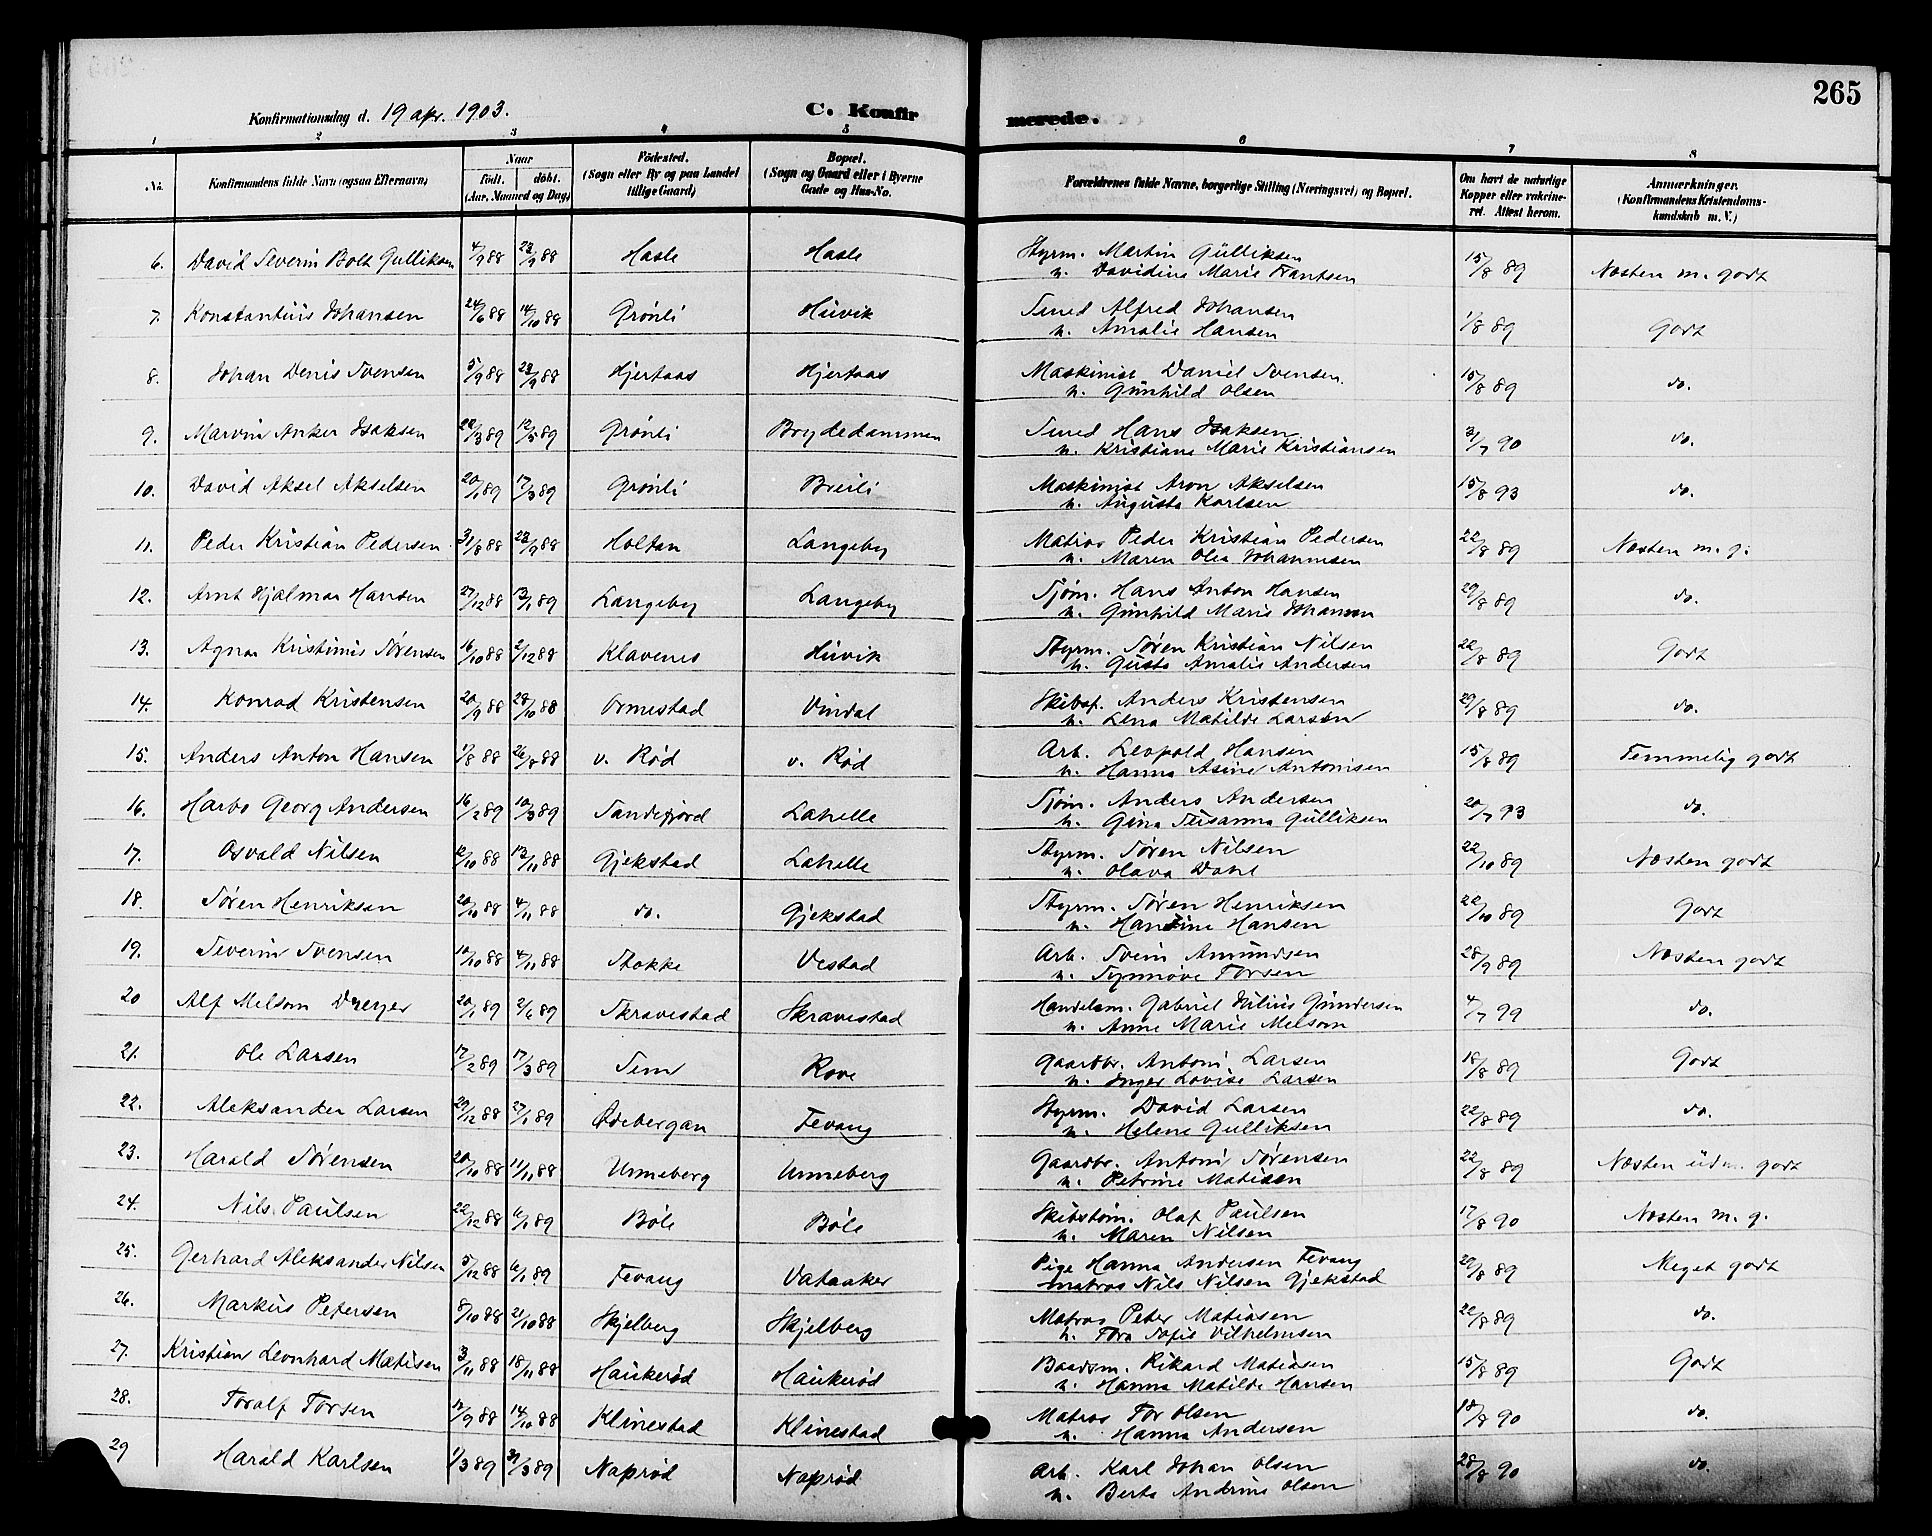 265
Konfirmationsdag d. 19 apr. 1903. C. Konfirmerede.
1 2 3 4 5 6 7 8
No. Konfirmandens fulde Navn (ogsaa Efternavn) Naar födt. döbt. (Aar, Maaned og Dag) Födested. (Sogn eller By og paa Landet tillige Gaard) Bopæl. (Sogn og Gaard eller i Byerne Gade og Hus-No. Forældrenes fulde Navne, borgerlige Stilling (Næringsvei) og Bopæl. Om havt de naturlige Kopper eller vakcineret. Attest herom. Anmærkninger. (Konfirmandens Kristendomskundskab m. V.)
6. David Severin Bolt Gulliksen 4/9 88 23/9 88 Hasle Hasle Styrm. Martin Gulliksen 15/8 89 Næsten m. godt
h. Davidine Marie Frantsen
7. Konstantius Johansen 24/6 88 14/10 88 Grönli Huvik Smed Alfred Johansen 1/8 89 Godt
h. Amalie Hansen
8. Johan Denis Svensen 5/9 88 23/9 88 Hjertaas Hjertaas Maskinist Daniel Svensen 15/8 89 do.
h. Gunhild Olsen
9. Marvin Anker Isaksen 22/3 89 12/5 89 Grönli Brydedammen Smed Hans Isaksen 3/7 90 do.
h. Kristiane Marie Kristiansen
10. David Aksel Akselsen 20/1 89 17/3 89 Grönli Breili Maskinist Aron Akselsen 15/8 93 do.
h. Augusta Karlsen
11. Peder Kristian Pedersen 31/8 88 23/9 88 Holtan Langeby Matros Peder Kristian Pedersen 22/8 89 Næsten m. g.
h. Maren Olea Johannesen
12. Arnt Hjalmar Hansen 27/12 88 13/1 89 Langeby Langeby Sjöm. Hans Anton Hansen 29/8 89 do.
h. Gunhild Marie Johansen
13. Agnar Kristinius Sörensen 16/10 88 2/12 88 Klavenes Huvik Styrm. Sören Kristian Nilsen 22/8 89 Godt
h. Gusta Amalie Andersen
14. Konrad Kristensen 20/9 88 28/10 88 Ormestad Vindal Skibsf. Anders Kristensen 29/8 89 do.
h. Lena Matilde Larsen
15. Anders Anton Hansen 1/8 88 26/8 88 v. Röd v. Röd Arb. Leopold Hansen 15/8 89 Temmelig godt
h. Hanna Asine Antonisen
16. Harbo Georg Andersen 16/2 89 10/3 89 Sandefjord Lahelle Sjöm. Anders Andersen 20/7 93 do.
h. Gina Susanna Gulliksen
17. Osvald Nilsen 12/10 88 13/11 88 Gjekstad Lahelle Styrm. Sören Nilsen 22/10 89 Næsten godt
h. Olava Dahl
18. Sören Henriksen 20/10 88 4/11 88 do. Gjekstad Styrm. Sören Henriksen 22/10 89 Godt
h. Hansine Hansen
19. Severin Svensen 10/10 88 4/11 88 Stokke Vestad Arb. Svein Amundsen 28/9 89 Næsten godt
h. Synnöve Torsen
20 Alf Melsom Dreyer 20/1 89 2/6 89 Skravestad Skravestad Handelsm. Gabriel Julius Gundersen 4/7 99 do.
h. Anne Marie Melsom
21. Ole Larsen 17/2 89 17/3 89 Sem Rove Gaardbr. Anton Larsen 18/8 89 Godt
h. Inger Lovise Larsen
22. Aleksander Larsen 29/12 88 27/1 89 Ödebergan Fevang Styrm. David Larsen 22/8 89 do.
h. Helene Gulliksen
23. Harald Sörensen 20/10 88 11/11 88 Unneberg Unneberg Gaardbr. Anton Sörensen 22/8 89 Næsten udm. godt
h. Petrine Matisen
24. Nils Paulsen 22/12 88 6/1 89 Böle Böle Skibstöm. Olaf Paulsen 17/8 90 Næsten m. g.
h. Maren Nilsen
25. Gerhard Aleksander Nilsen 5/12 88 6/1 89 Fevang Vataaker Pige Hanna Andersen Fevang 29/8 89 Meget godt
matros Nils Nilsen Gjekstad
26. Markus Petersen 8/10 88 21/10 88 Skjelberg Skjelberg Matros Peter Matiasen 22/8 89 do.
h. Tora Sofie Vilhelmsen
27. Kristian Leonhard Matisen 3/11 88 18/11 88 Haukeröd Haukeröd Baadsm. Rikard Matiasen 15/8 89 Godt
h. Hanna Matilde Hansen
28. Toralf Torsen 12/9 88 14/10 88 Klinestad Klinestad Matros Tor Olsen 18/8 90 do.
h. Hanna Andersen
29 Harald Karlsen 1/3 89 31/3 89 Napröd Napröd Arb. Karl Johan Olsen 28/8 90 do.
h. Berte Andrine Olsen